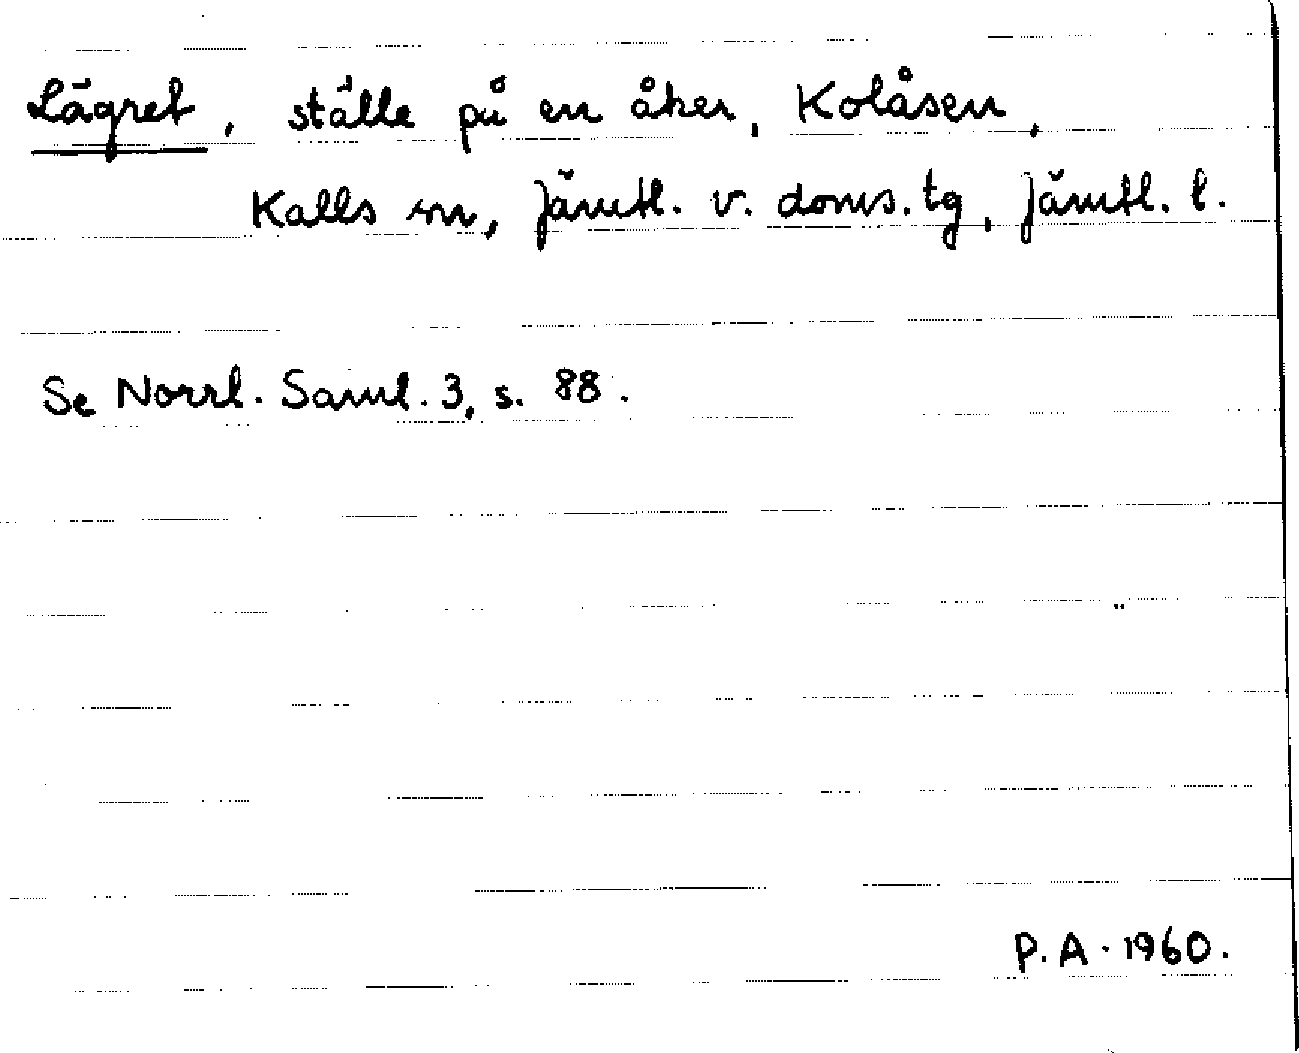 Lägret, ställe på en åker, Kolåsen,
Kalls sn, Jämtl. v. doms. tg, Jämtl. l.
Se Norrl. Saml. 3, s. 88.
P. A. 1960.